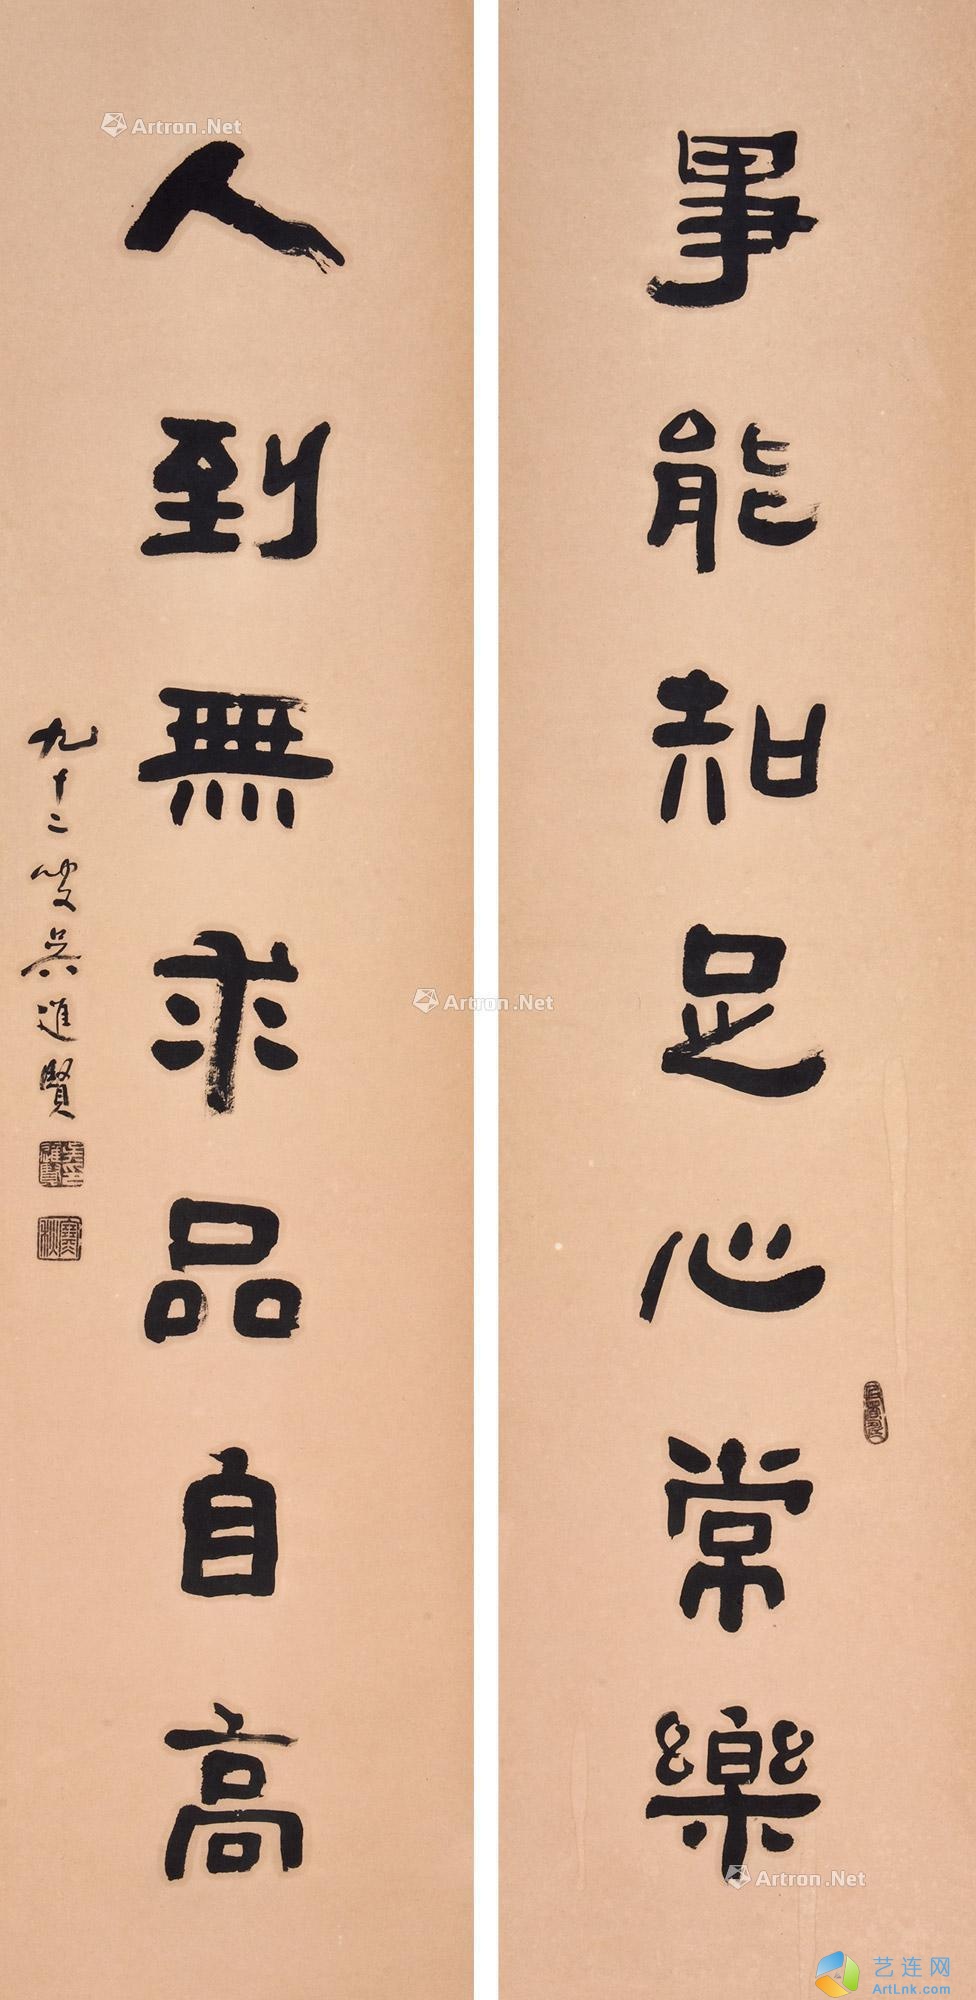 事能知足心常樂
人到無求品自高
九十二叟吳進賢
Artron.Net
Artron.Net
Artron.Net
艺连网
ArtLnk.com